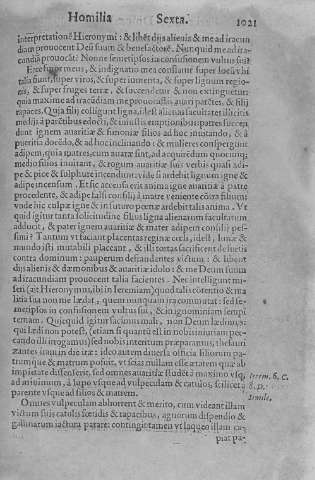 Homilia Sexta. 1021
interpretationẽ Hieronymi: & libẽt dijs alienis & me ad iracun
diam prouocent Deũ suum & benefactorẽ. Nunquid me ad ira-
cundiã prouocãt? Nonne semetipsos in confusionem vultus sui?
Ecce furor meus, & indignatio mea conflatur super locũ
super viros, & super iumenta, & super lignum regio-
nis, & super fruges terræ, & succendetur & non extinguetur:
quia maxime ad iracũdiam me prouocastis auari partes, & filij
rapaces. Quia filij colligunt ligna, idest aliena facultates illicitis
à partibus edocti, & iniustis ereptionibus: patres succen-
dunt ignem auaritiæ & fœnoris filios ad hoc incitando, & à
pueritia docẽdo, & ad hoc inclinando: & mulieres conspergunt
adipem, quia matres, cum auaræ sint, ad acquirẽdum quocunq;
medio filios inuitant, & rogum auaritiæ suis verbis quasi adi-
pe & pice & sulphure incendunt: vnde sic ardebit lignum igne &
adipe incensum. Et sic accusa eris anima igne auaritiæ à patre
procedente, & adipe falsi consilij à matre veniente cõtra filium:
vnde hic culpæ igne & in futuro pœnæ ardebit talis anima. Vt
quid igitur tanta solicitudine filius ligna alienarum facultatum
adducit, & pater ignem auaritiæ & mater adipem consilij pes-
simi? Tantum vt faciant placentas reginæ cœli, idest, lunæ &
mundo isti mutabili placeant, & illi totas sacrificent delicias
contra dominum: pauperum defraudantes victum: & libent
dijs alienis & dæmonibus & auaritiæ idolo: & me Deum suum
ad iracundiam prouocent talia facientes. Nec intelligunt mi-
seri (ait Hieronymus, ibi in Ieremiam) quod talis oberatio & ma
litia sua non me lædat, quem nunquam ira commutat: sed se-
metipsos in confusionem vultus sui, & in ignominiam sempi
ternam. Quicquid igitur facimus mali, non Deum lædimus:
qui lædi non potest, (etiam si quantũ est in nobis iniuriam pec-
cando illi irrogamus) sed nobis interitum præparamus, thesauri
zantes iram in die iræ: ideo autem diuersa officia filiorum pa-
trumque & matrum posuit, vt scias nullam esse ætatem quæ ab
impietate dissenserit, sed omnes auaritiæ studẽt à maximo vsq;
ad minimum, à lupo vsque ad vulpeculam & catulos, scilicet à
parente vsque ad filios & matrem.
Ierem. 6. C.
8. D.
Simile.
Omnes vulpeculam abhorrent & merito, cum videant illam
victum suis catulis fœtidis & rapacibus, agnorum dispendio &
gallinarum iactura parare: contingit tamen vt laqueo illam ca-
piat pa-